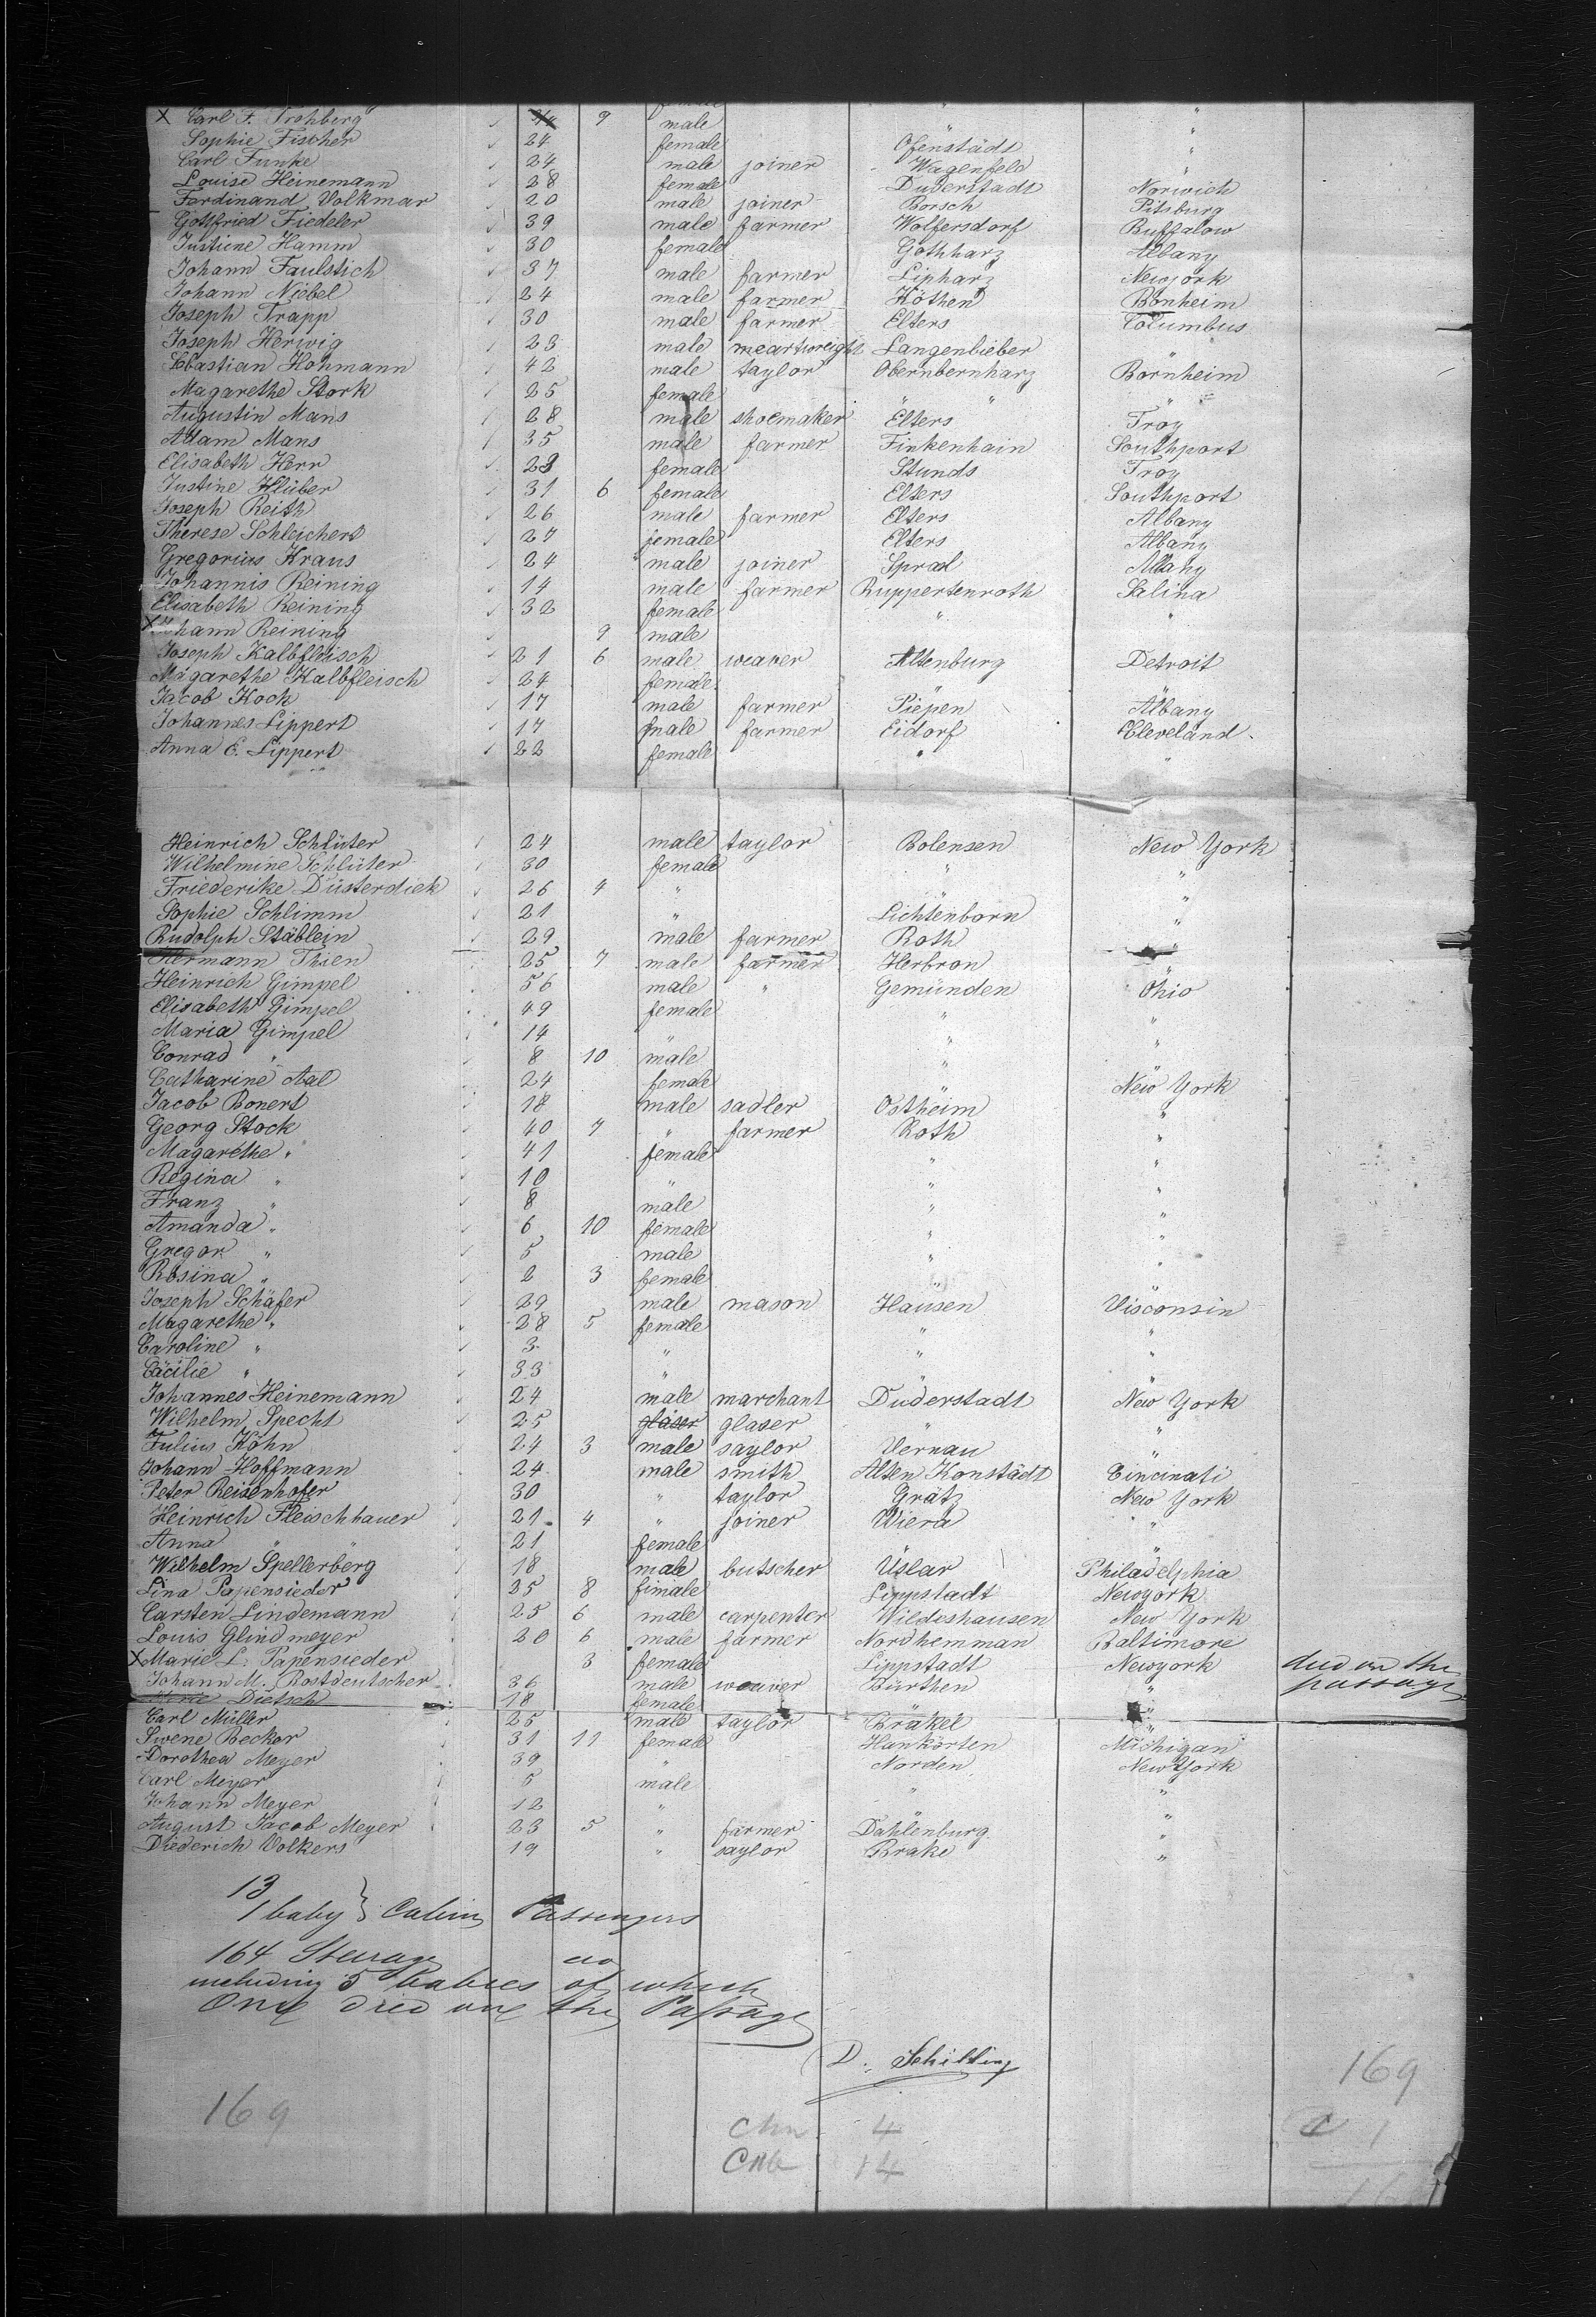 X Carl F. Trohberg 9 male " "
Sophie Fischer 24 female Ofenstädt "
Carl Funke 24 male joiner Wagenfeld "
Louise Heinemann 28 female Duderstadt Norwich
Ferdinand Volkmar 20 male joiner Borsch Pitsburg
Gottfried Fiedeler 39 male farmer Wolfersdorf Buffalow
Justine Hamm 30 female Gothharz Albany
Johann Faulstich 37 male farmer Lipharz Newyork
Johann Niebel 24 male farmer Köthen Bonheim
Joseph Trapp 30 male farmer Elters Columbus
Joseph Herwig 23 male meartwright Langenbieber "
Sebastian Hohmann 42 male taylor Obernbernharz Bornheim
Magarethe Stork 25 female " " "
Augustin Mans 28 male shoemaker Elters Troy
Adam Mans 35 male farmer Finkenhain Southport
Elisabeth Herr 23 female Stunds Troy
Justine Hlüber 31 6 female Elters Southport
Joseph Reith 26 male farmer Elters Albany
Therese Schleichert 27 female Elters Albany
Gregorius Kraus 24 male joiner Sprad Albany
Johannis Reining 14 male farmer Ruppertenroth Salina
Elisabeth Reining 32 female " "
X Johann Reining 9 male
Joseph Kalbfleisch 21 6 male weaver Altenburg Detroit
Magarethe Kalbfleisch 24 female " "
Jacob Kock 17 male farmer Piepen Albany
Johannes Lippert 17 male farmer Eidorf Cleveland
Anna E. Lippert 22 female " "
Heinrich Schlüter 24 male taylor Bolensen New York
Wilhelmine Schlüter 30 female " "
Friederike Düsterdiek 26 4 " "
Sophie Schlimm 21 " Lichtenborn "
Rudolph Stäblein 29 male farmer Roth "
Hermann Thien 25 7 male farmer Herbron
Heinrich Gimpel 56 male " Gemünden Ohio
Elisabeth Gimpel 49 female " "
Maria Gimpel 14 " " "
Conrad " 8 10 male " "
Catharine Aal 24 female New York
Jacob Bonert 18 male sadler Ostheim "
Georg Stock 40 7 " farmer Roth "
Magarethe " 41 female " "
Regina " 10 " " "
Franz " 8 male " "
Amanda " 6 10 female " "
Gregor " 5 male " "
Rosina " 2 3 female " "
Joseph Schäfer 29 male mason Hausen Visconsin
Magarethe " 28 5 female " "
Caroline " 3 " " "
Cäcilie " 33 " " "
Johannes Heinemann 24 male marchant Duderstadt New York
Wilhelm Specht 25 glaser glaser " "
Julius Köhn 24 3 male saylor Vernau "
Johann Hoffmann 24 male smith Alten Konstädt Cincinati
Peter Reisenhofer 30 " taylor Grätz New York
Heinrich Fleischhauer 21 4 " joiner Wiera "
Anna " 21 female " "
Wilhelm Spellerberg 18 male butscher Uslar Philadelphia
Lina Papensieder 25 8 fimale Lippstadt Newyork
Carsten Lindemann 25 6 male carpenter Wildeshausen New York
Louis Glindmeyer 20 6 male farmer Nordhemman Baltimore
X Marie L. Papensieder 3 female Lippstadt Newyork died on the
Johann M. Rostdeutscher 36 male weaver Burthen " passage
Dietsch 18 female "
Carl Müller 25 male taylor Brakel "
Swene Becker 31 11 female Hankorten Michigan
Dorothea Meyer 39 " Norden New York
Carl Meyer 5 male " "
Johann Meyer 12 " "
August Jacob Meyer 23 5 " farmer Dahlenburg "
Diederich Volkers 19 " saylor Brake "
13
1 baby } Cabin Passengers
164 Steerage do
including 5 babies of which
One died one the Passage
D. Schilling
169
169
Chn 4
14
1